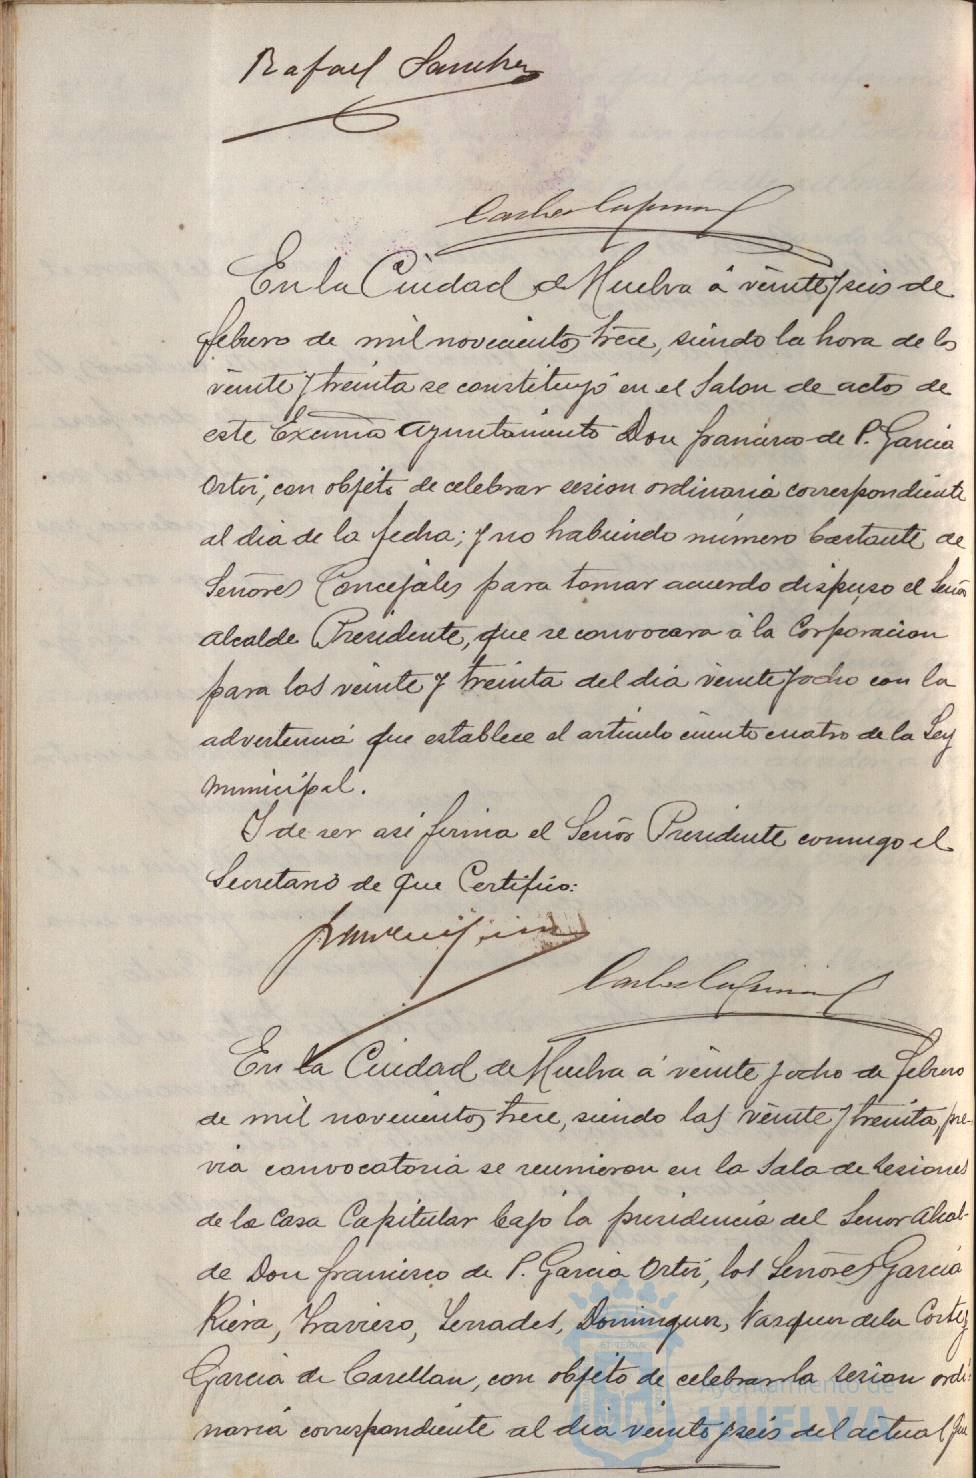 Rafael Sanchez
En la Ciudad de Huelva á veinte y seis de
febrero de mil novecientos trece, siendo la hora de las
veinte y treinta se constituyó en el Salon de actos de
este Excmo Ayuntamiento Don francisco de P. Garcia
Ortiz, con objeto de celebrar sesion ordinaria correspondiente
al dia de la fecha; y no habiendo número bastante de
Señores Concejales para tomar acuerdo dispuso el Señor
Alcalde Presidente, que se convocara á la Corporacion
para las veinte y treinta del dia veinte y ocho con la
advertencia que establece el articulo ciento cuatro de la Ley
Municipal.
Y de ser asi firma el Señor Presidente conmigo el
Secretario de que Certifico:
En la Ciudad de Huelva á veinte y ocho de febrero
de mil novecientos trece, siendo las veinte y treinta, pre-
via convocatoria se reunieron en la Sala de Sesiones
de la Casa Capitular bajo la presidencia del Señor Alcal-
de Don francisco de P. Garcia Ortiz, los Señores Garcia
Riera, Travieso, Serrades, Dominguez, Vazquez de la Corte y
Garcia de Caxellan, con objeto de celebrar la sesion ordi-
naria correspondiente al dia veinte y seis del actual que
Ayuntamiento de
HUELVA